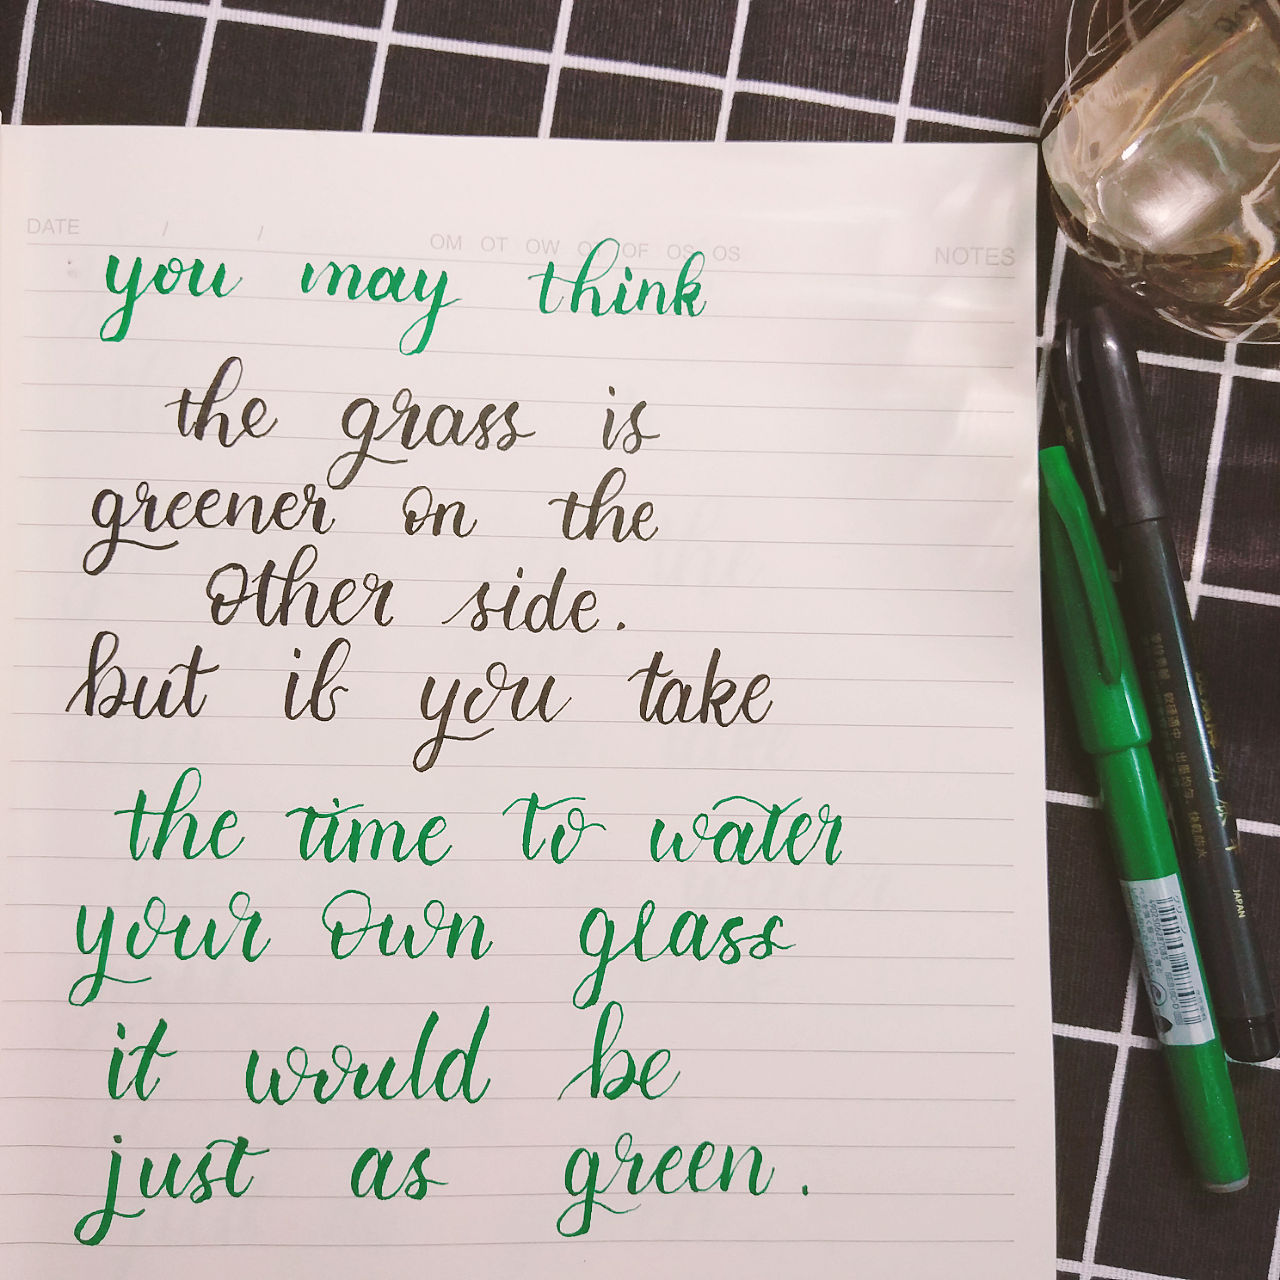 DATE / /
OM OT OW OT OF OS OS
NOTES
you may think
the grass is
greener on the
other side.
but if you take
the time to water
your own glass
it would be
just as green.
JAPAN